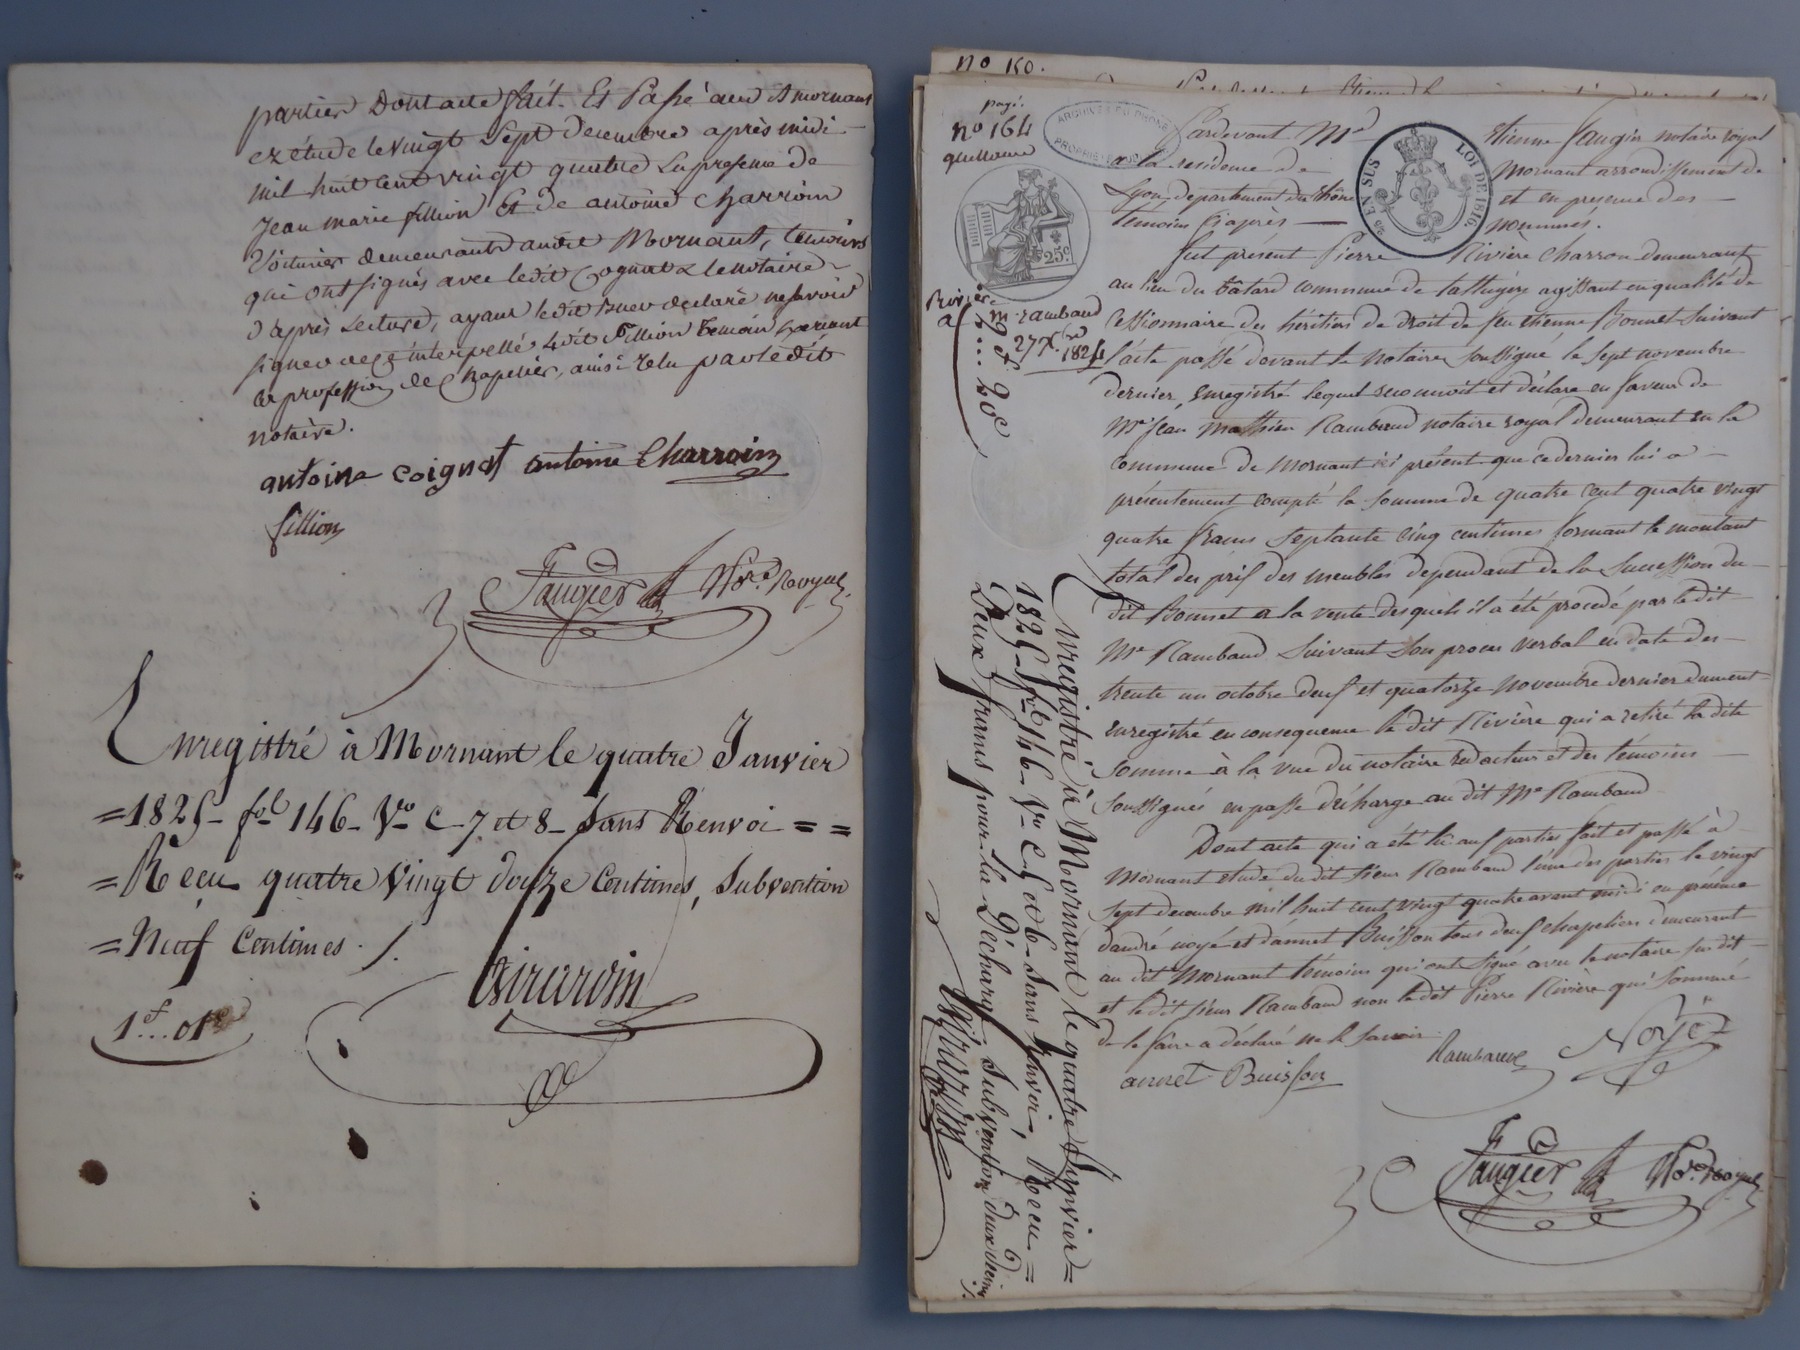 parties Dont acte fait. Et Passé audit mornant
ez étude le vingt Sept Decembre après midi
mil huit cent vingt quatre En presence de
Jean marie fillion Et de antoine Charroin
Voiturier demeurants audit Mornant, temoins
qui ont signés avec ledit Cognat & le notaire
D'après Lecture, ayant ledit declaré ne savoir
signer de ce interpellé ledit fillion temoin exercant
la profession de Chapelier, ainsi relu par ledit
notaire.
antoine coignat antoine Charroin
fillion
Faugier Nore Royal
Enregistré à Mornant le quatre Janvier
=1825- fol 146- Vo C- 7 et 8- Sans Renvoi = =
=Reçu quatre vingt douze Centimes, Subvention
=Neuf Centimes ./.
Girardin
1f...01c
no 150.
pagé.
no 164
quittance
ARCHIVES DU RHONE
PROPRIÉTÉ PUBLIQUE
25c
EN SUS
LOI DE 1816
Rivière
a
m. rambaud
27 Xbre
1824
2f...20c
Pardevant Me Etienne Faugier notaire royal
a la residence de Mornant arrondissement de
Lyon, departement du Rhône et en presence des
temoins ci après nommés.
fut présent Pierre Rivière Charron demeurant
au lieu du bâtard commune de taluyers agissant en qualité de
Cessionnaire des héritiers de Droit de feu Etienne Bonnet Suivant
l'acte passé devant le notaire soussigné le sept novembre
dernier, enregistré lequel reconnoit et déclare en faveur de
Me Jean Mathieu Rambaud notaire royal demeurant en la
commune de Mornant ici présent que ce dernier lui a
présentement compté la somme de quatre cent quatre vingt
quatre francs septante cinq centimes formant le montant
total du prix des meubles dependant de la Succession du
dit Bonnet a la vente desquels il a été procedé par le dit
Me Rambaud Suivant Son proces verbal en date des
trente un octobre deux et quatorze novembre dernier dument
enregistré en consequence le dit Rivière qui a retiré la dite
somme à la vue du notaire redacteur et des témoins
soussignés en passe décharge au dit Me Rambaud
Dont acte qui a été lu aux parties fait et passé à
Mornant etude du dit sieur Rambaud l'une des parties le vingt
sept decembre mil huit cent vingt quatre avant midi en présence
d'andré noyé et d'annet Buisson tous deux chapeliers demeurant
au dit Mornant témoins qui ont signé avec le notaire susdit
et le dit sieur Rambaud non le dit Pierre Rivière qui sommé
de le faire a déclaré ne le savoir
annet Buisson Rambaud Noyé
Faugier Nore Royal
Enregistré à Mornant le quatre Janvier=
1825- fol 146- Vo C 5 et 6- Sans Renvoi-, Recu=
Deux francs pour la Décharge, Subvention deux décimes
Girardin